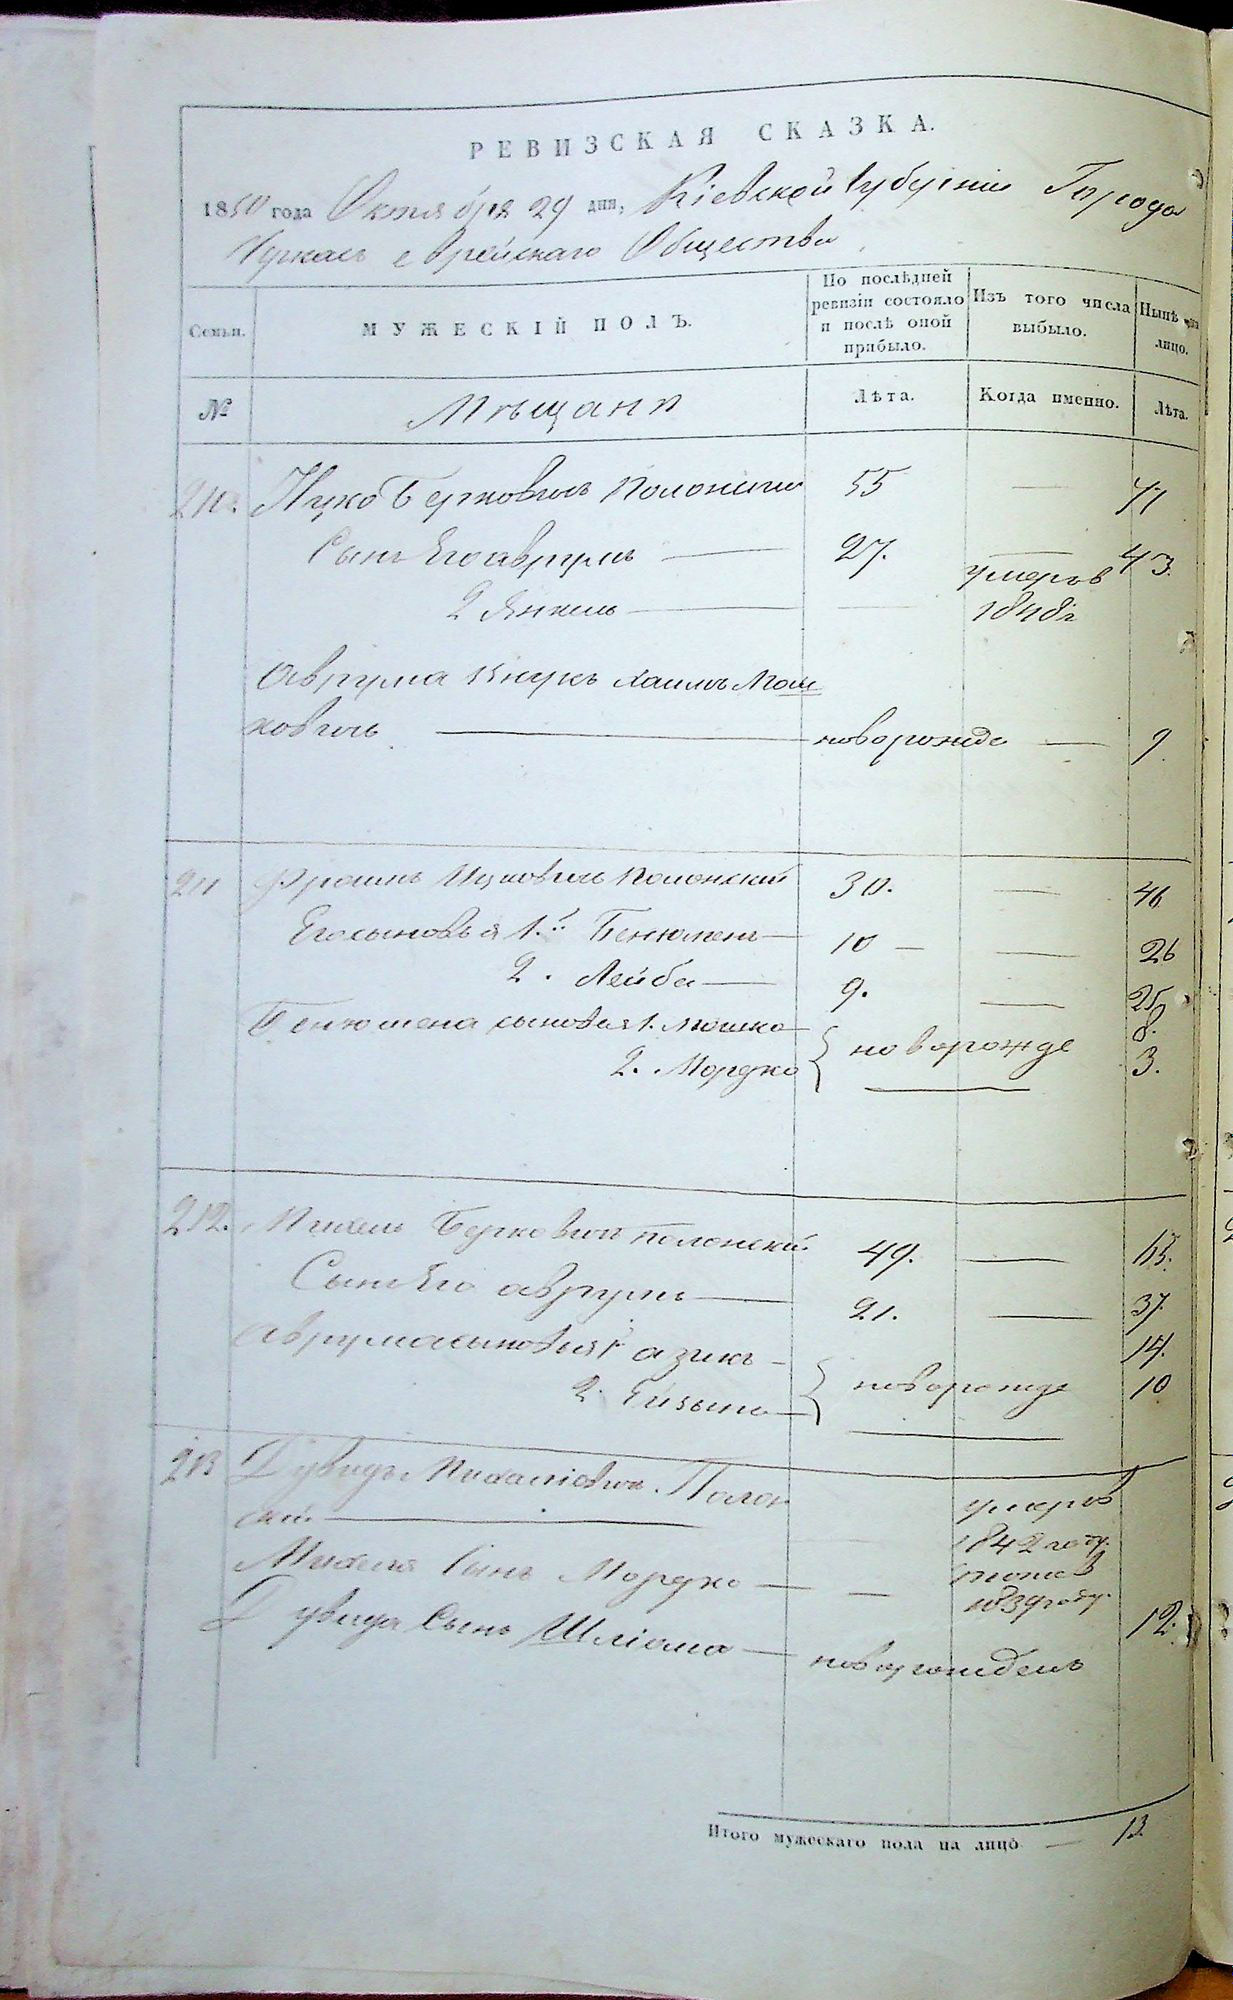 РЕВИЗСКАЯ СКАЗКА.
1850 года Октября 29 дня, Кіевской Губерніи Города
Черкасъ еврейскаго Общества
Семьи. МУЖЕСКІЙ ПОЛЪ. По послѣдней ревизіи состояло и послѣ оной прибыло. Изъ того числа выбыло. Нынѣ на лицо.
№ Мѣщане Лѣта. Когда именно. Лѣта.
210. Ицко Берковичъ Полонскій 55 — 71
Сынъ Его аврумъ — 27. — 43.
2 Янкель — — умеръ в 1848г
Аврума Внукъ хаимъ Мош
ковичъ — новорожде — 9
211 Фроимъ Ицковичъ Полонскій 30. — 46
Его сыновья 1.й Бенюменъ — 10 — — 26
2. Лейба — 9. — 25
Бенюмена сыновья 1. Мошко — { новорожде 8.
2. Мордко 3.
212. Михель Берковичъ полонскій 49. — 65.
Сынъ Его аврумъ — 21. — 37.
аврума сыновья 1 азикъ — { новорожде 14.
2. — 10
213 Дувидъ Михелевичъ Полон
скій — — умеръ в 1842 году.
Михеля Сынъ Мордко — — тоже в 1839 году.
Дувида Сынъ Шліома — новорожденъ 12.
Итого мужескаго пола на лицо — 13